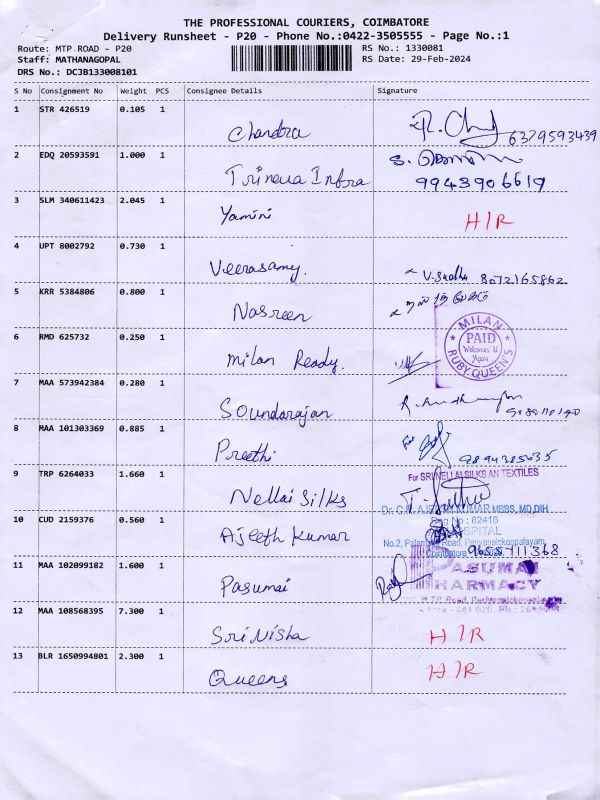 THE PROFESSIONAL COURIERS, COIMBATORE
Delivery Runsheet - P20 - Phone No.:0422-3505555 - Page No.:1
Route: MTP ROAD - P20
RS No.: 1330081
Staff: MATHANAGOPAL
RS Date: 29-Feb-2024
DRS No.: DCJB133008101
S No Consignment No Weight PCS Consignee Details Signature
1 STR 426519 0.105 1 Chandra 6379593439
2 EDQ 20593591 1.000 1 Trineva Infra 9943906619
3 SLM 340611423 2.045 1 Yamini H/R
4 UPT 8002792 0.730 1 Veerasamy. 8072165862
5 KRR 5384806 0.800 1 Nasreen
6 RMD 625732 0.250 1 Milan Ready.
MILAN
PAID
Welcomes U
Again
RUBY QUEEN'S
7 MAA 573942384 0.280 1 Soundarajan
8 MAA 101303369 0.885 1 Preethi 9894385635
9 TRP 6264033 1.660 1 Nellai Silks
For SRI NELLAI SILKS AN TEXTILES
10 CUD 2159376 0.560 1 Ajeeth Kumar
MBBS, MD, DIH
Reg No : 82416
HOSPITAL
Road, Periyanaickenpalayam,
9655711368
11 MAA 102099182 1.600 1 Pasumai
PASUMAI
PHARMACY
M.T.P. Road, Periyanaickenpalayam
12 MAA 108568395 7.300 1 Sri Nisha H/R
13 BLR 1650994801 2.300 1 Queens H/R